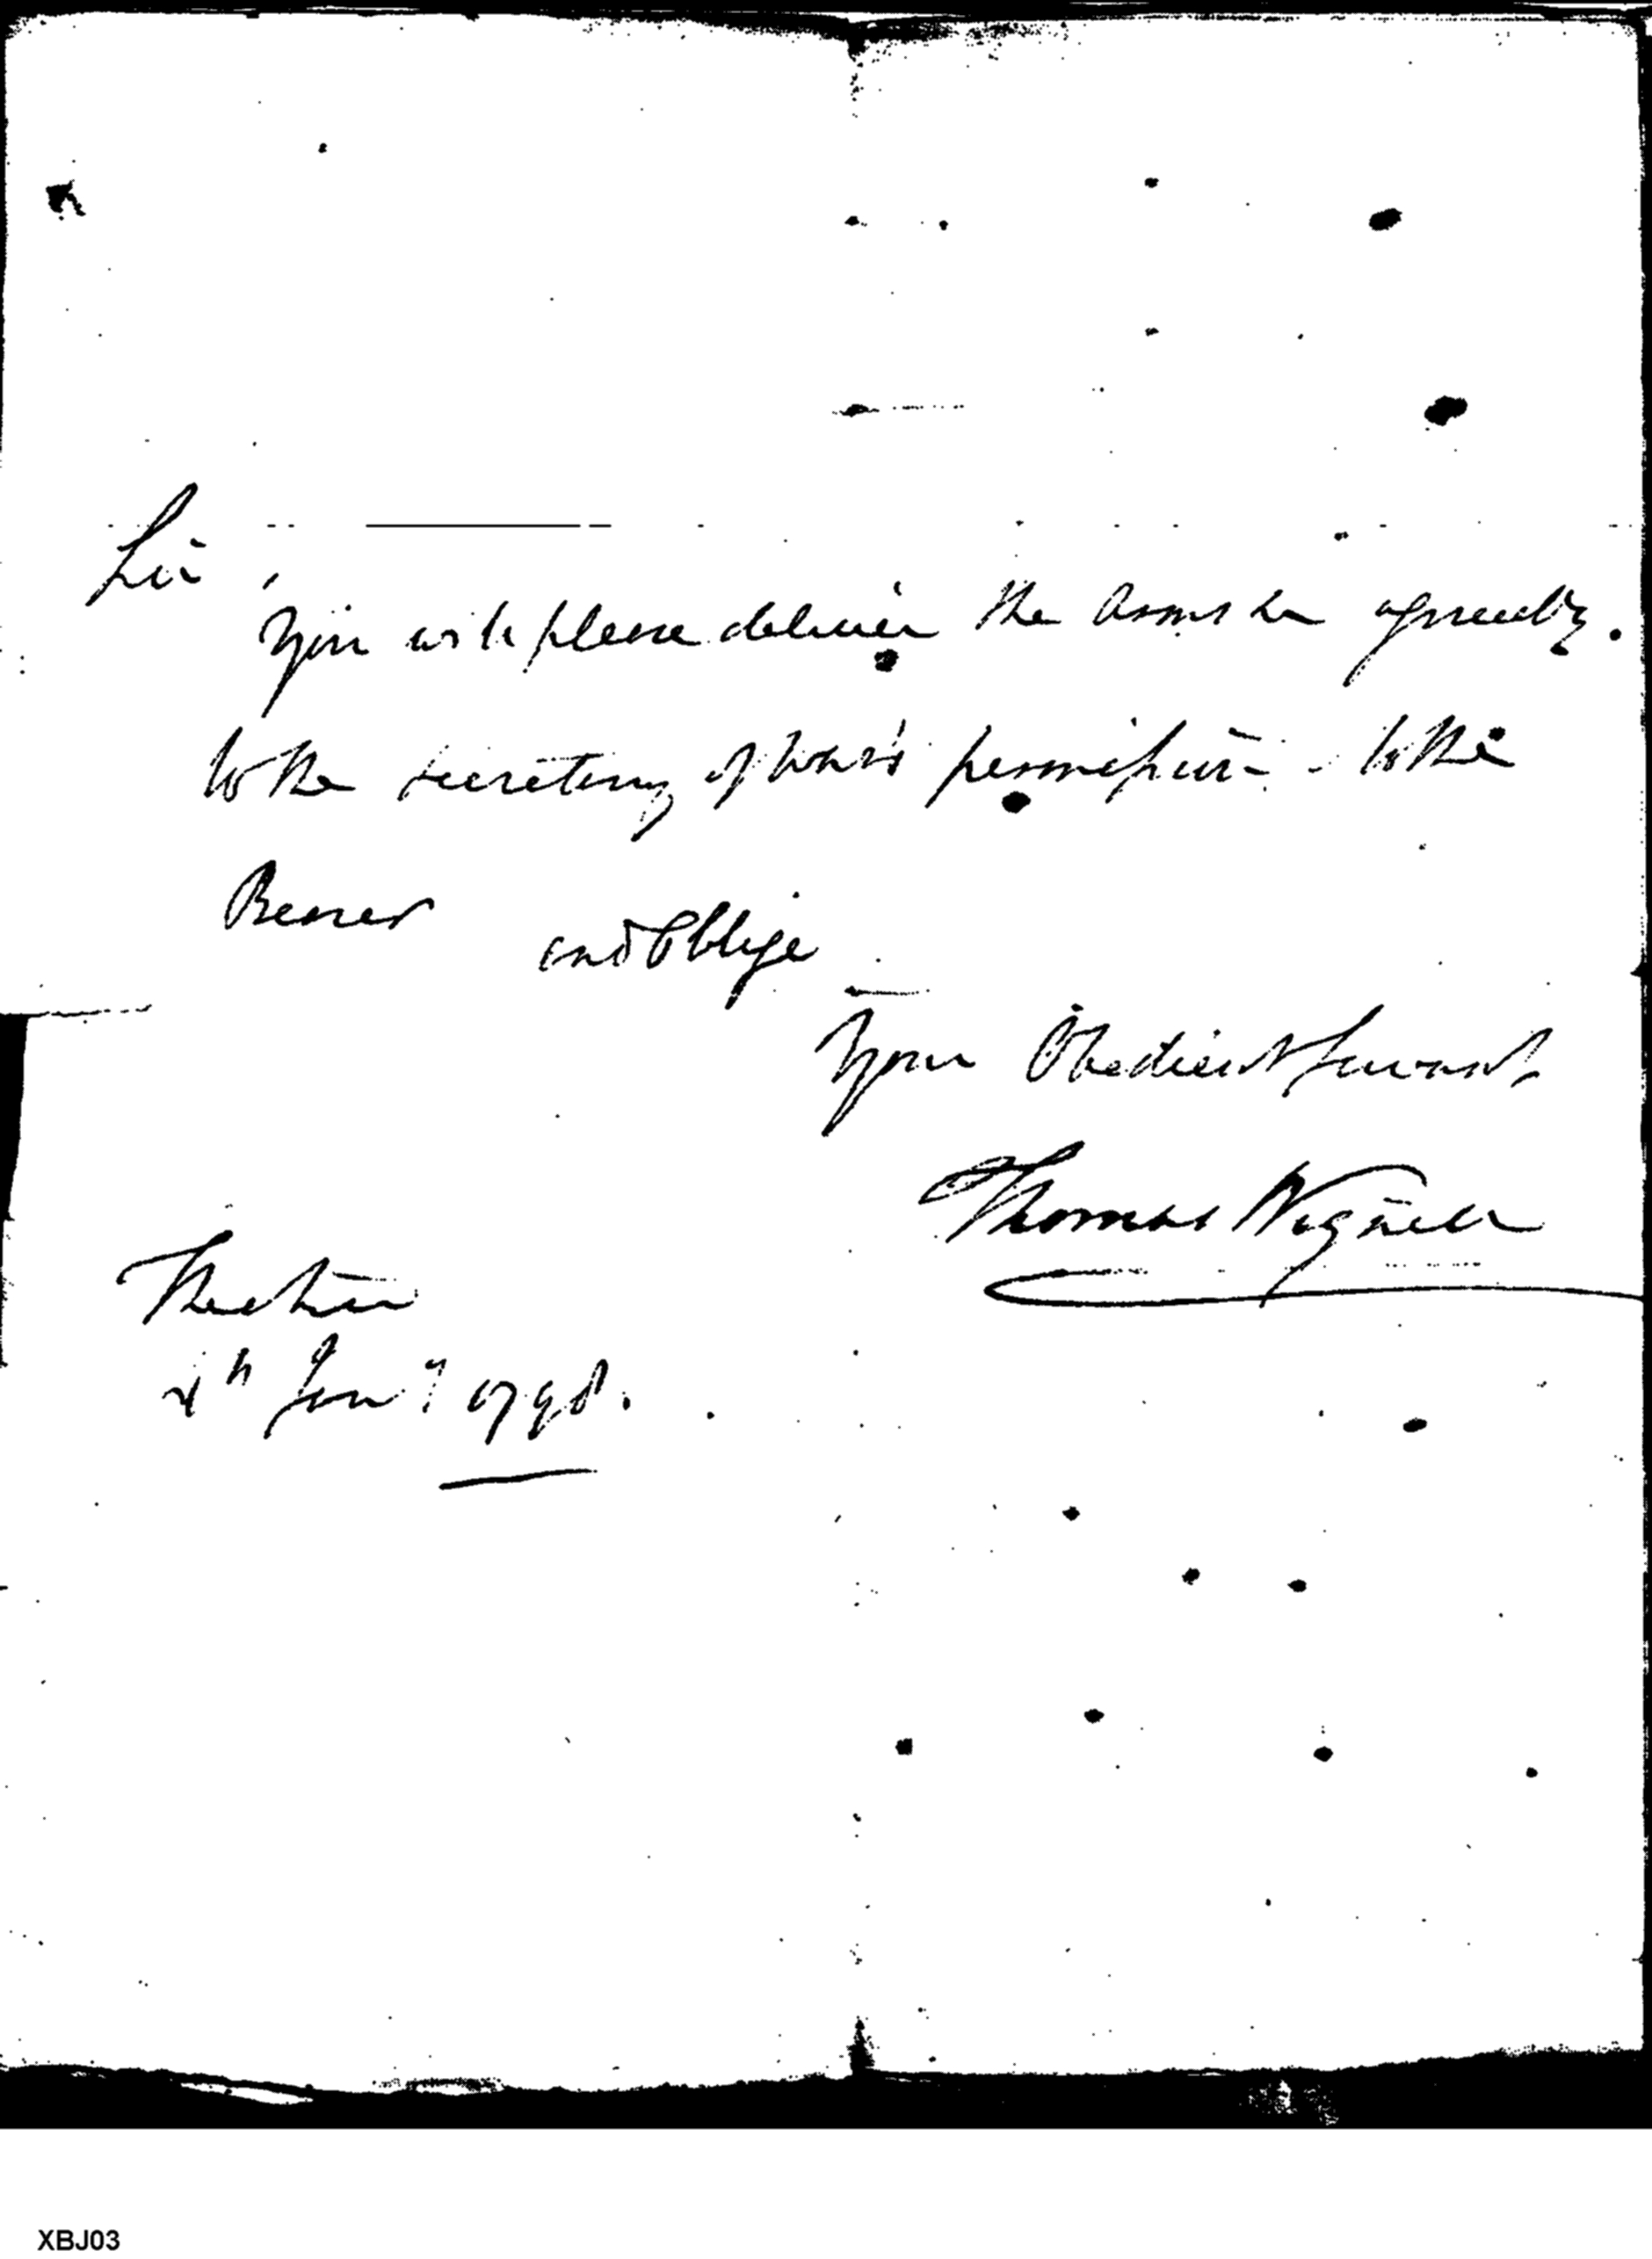 Sir,
You will please deliver the Arms &c agreeably
to the secretary of War's permission - to the
Bearer
and Oblige
Your Obedient Servant
Thomas Wignell
Theatre
4th Jany 1798.
XBJ03